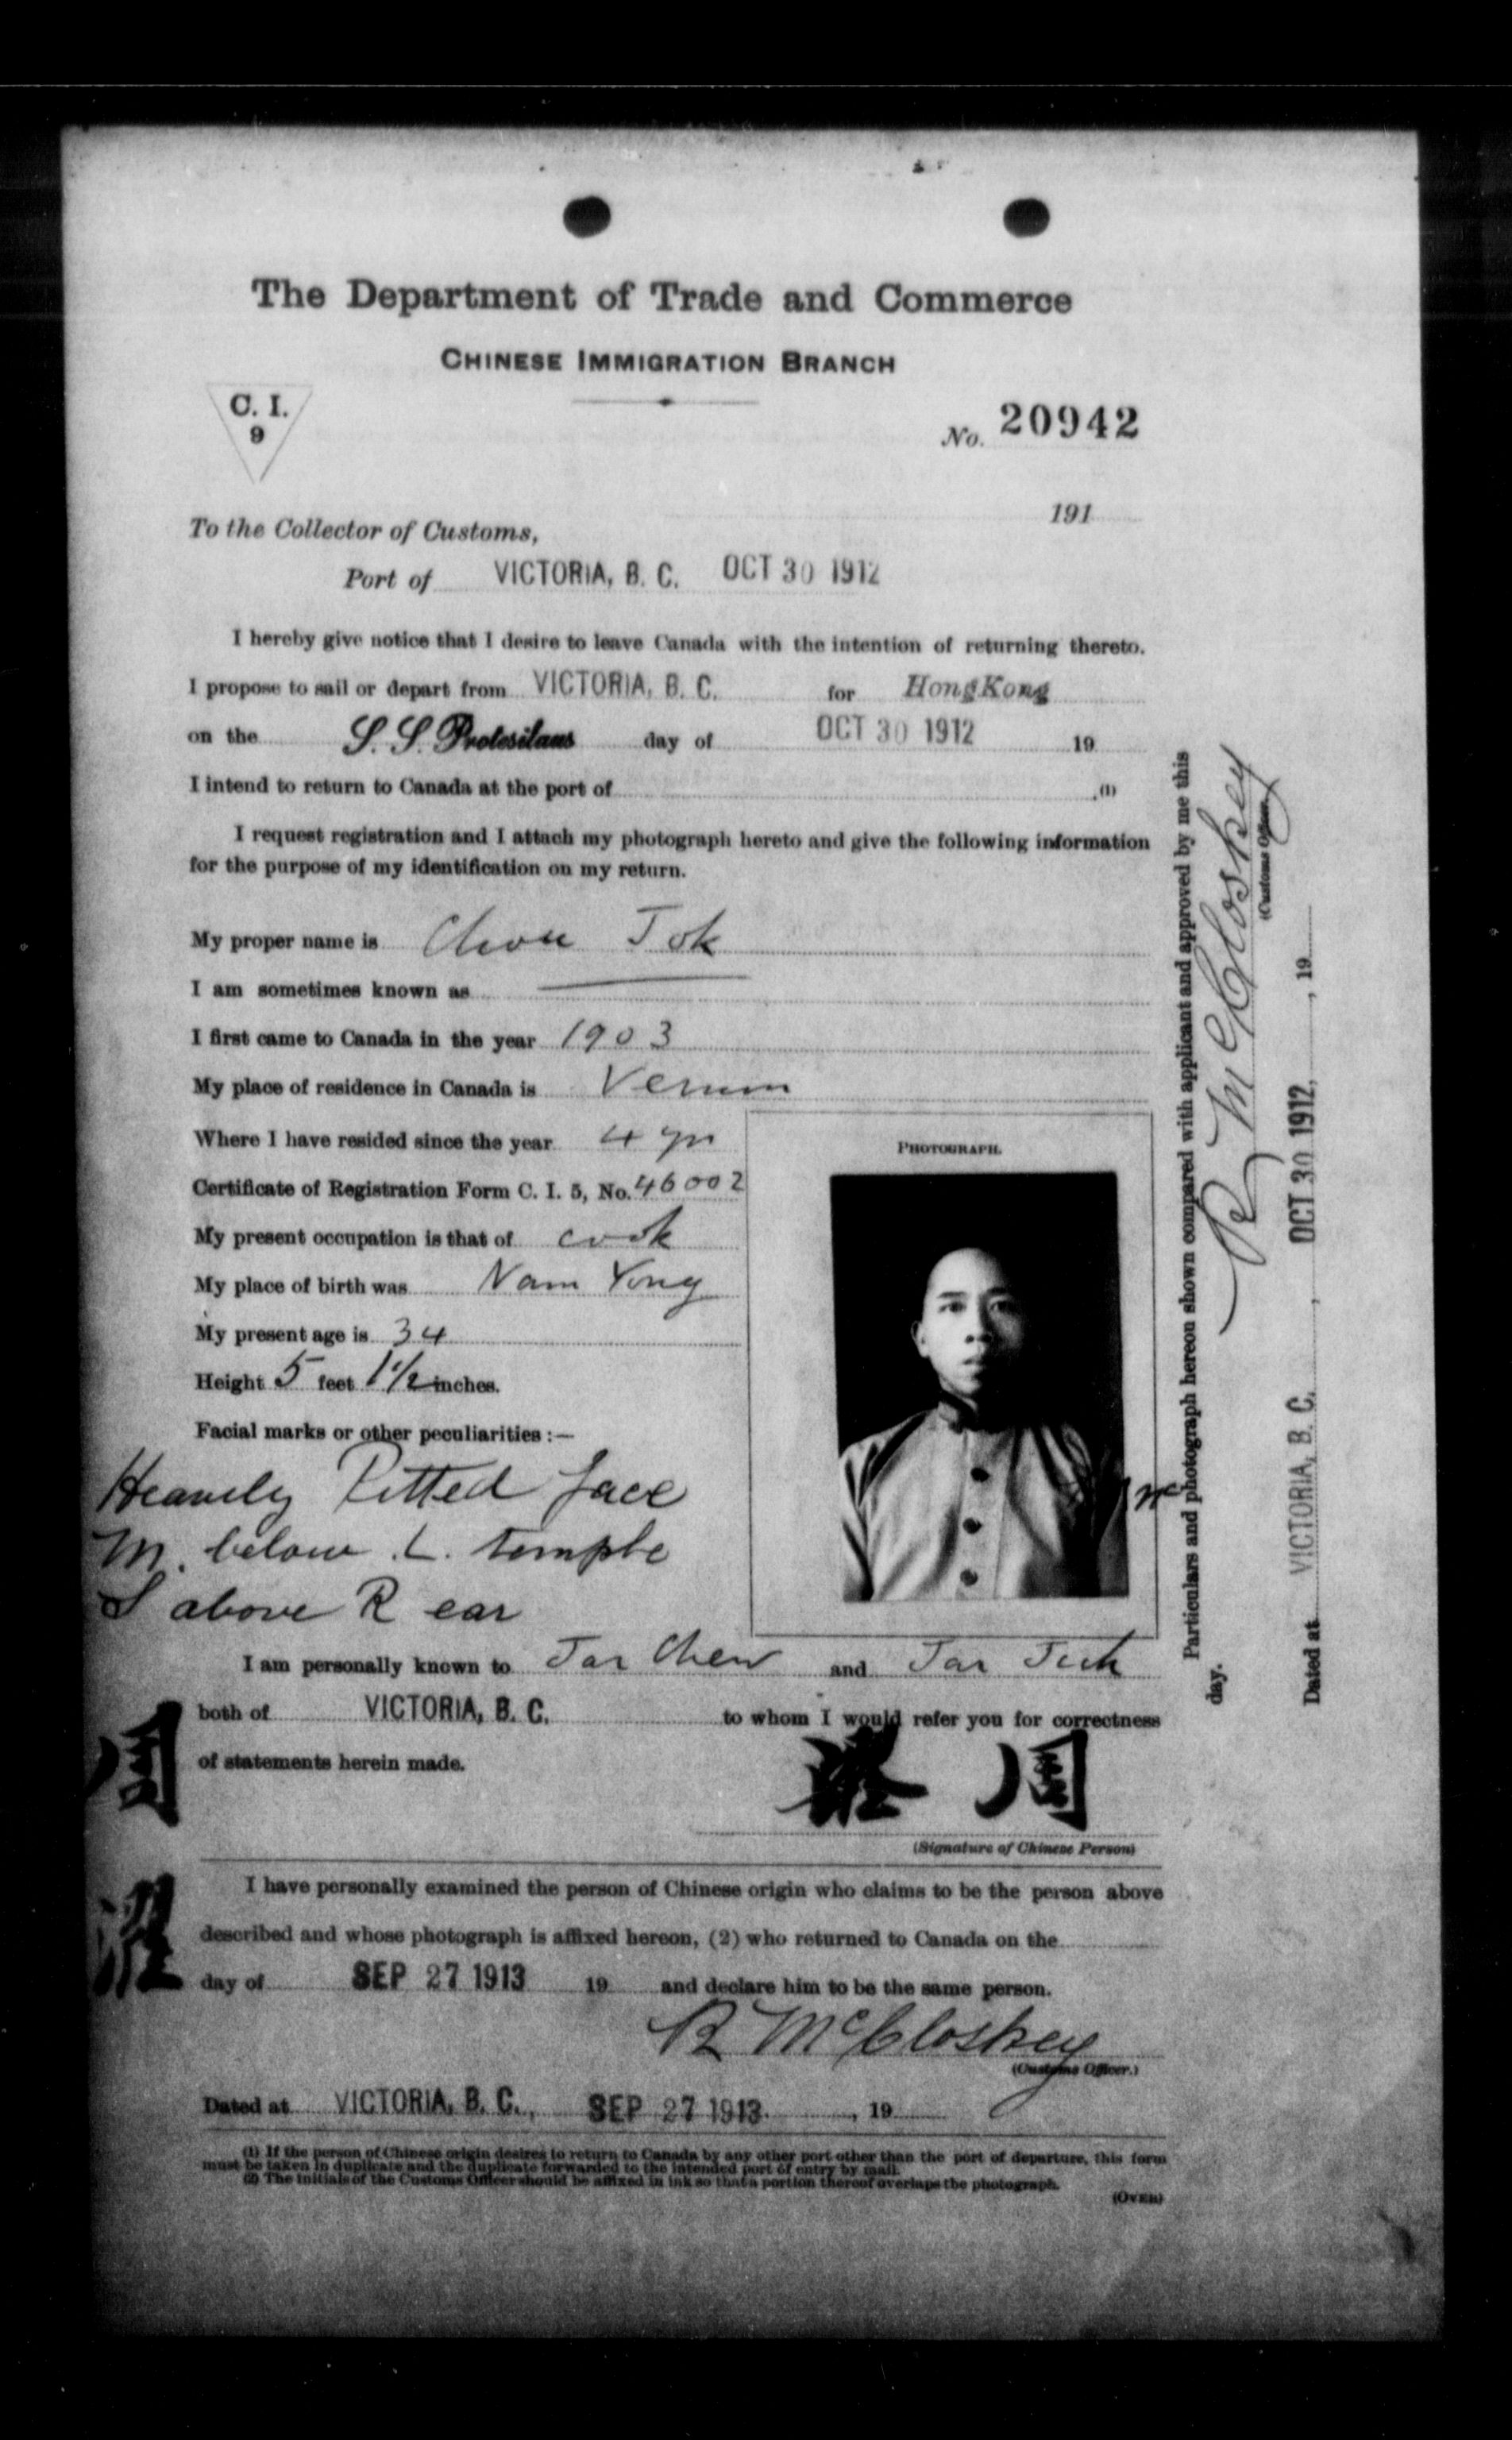 The Department of Trade and Commerce
CHINESE IMMIGRATION BRANCH
C. I.
9
No. 20942
191
To the Collector of Customs,
Port of VICTORIA, B. C. OCT 30 1912
I hereby give notice that I desire to leave Canada with the intention of returning thereto.
I propose to sail or depart from VICTORIA, B. C. for HongKong
on the S. S. Protesilaus day of OCT 30 1912 19
I intend to return to Canada at the port of .(1)
I request registration and I attach my photograph hereto and give the following information
for the purpose of my identification on my return.
My proper name is Chou Tok
I am sometimes known as
I first came to Canada in the year 1903
My place of residence in Canada is Vernon
Where I have resided since the year 4 yrs
Certificate of Registration Form C. I. 5, No. 46002
My present occupation is that of cook
My place of birth was Nam Yong
My present age is 34
Height 5 feet 1 1/2 inches.
Facial marks or other peculiarities :—
Heavily Pitted face
M. below L. temple
S above R ear
PHOTOGRAPH.
I am personally known to Tar Chew and Tar Tuck
both of VICTORIA, B. C. to whom I would refer you for correctness
of statements herein made.
周
(Signature of Chinese Person)
周
I have personally examined the person of Chinese origin who claims to be the person above
described and whose photograph is affixed hereon, (2) who returned to Canada on the
day of SEP 27 1913 19 and declare him to be the same person.
R McCloskey
(Customs Officer.)
Dated at VICTORIA, B. C., SEP 27 1913 , 19
(1) If the person of Chinese origin desires to return to Canada by any other port other than the port of departure, this form
must be taken in duplicate and the duplicate forwarded to the intended port of entry by mail.
(2) The initials of the Customs Officer should be affixed in ink so that a portion thereof overlaps the photograph.
(OVER)
Particulars and photograph hereon shown compared with applicant and approved by me this
day.
R McCloskey
(Customs Officer)
Dated at VICTORIA, B. C. , OCT 30 1912, , 19